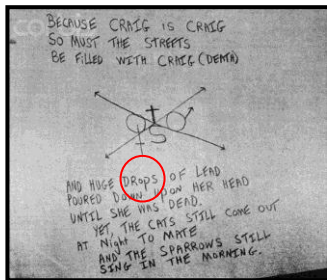 BECAUSE CRAIG IS CRAIG
SO MUST THE STREETS
BE FILLED WITH CRAIG (DEATH)
AND HUGE DROPS OF LEAD
POURED DOWN UPON HER HEAD
UNTIL SHE WAS DEAD.
YET, THE CATS STILL COME OUT
AT NIGHT TO MATE
AND THE SPARROWS STILL
SING IN THE MORNING.